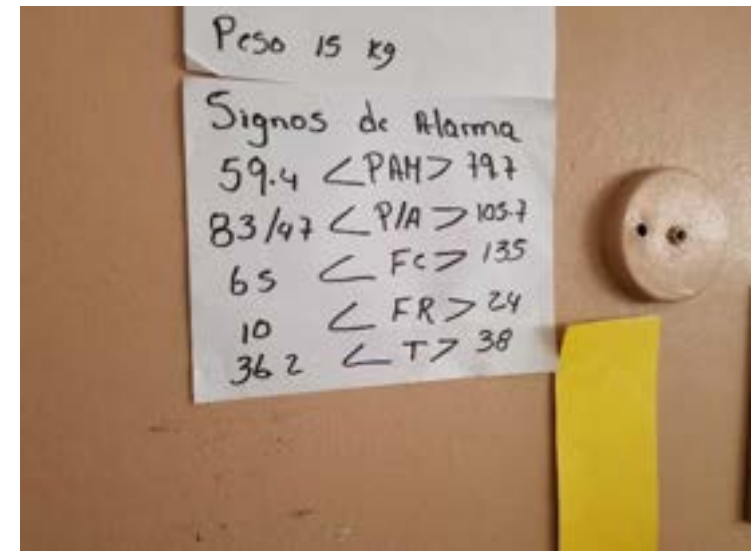 Peso 15 kg
Signos de Alarma
59.4 < PAM > 79.7
83/47 < P/A > 105.7
65 < FC > 135
10 < FR > 24
36 2 < T > 38